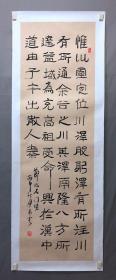 惟巛靈定位川澤股躬澤有所注川
有所通余谷之川其澤南隆八方所
達益域為充高祖受命興於漢中
道由子午出散入秦
石門頌